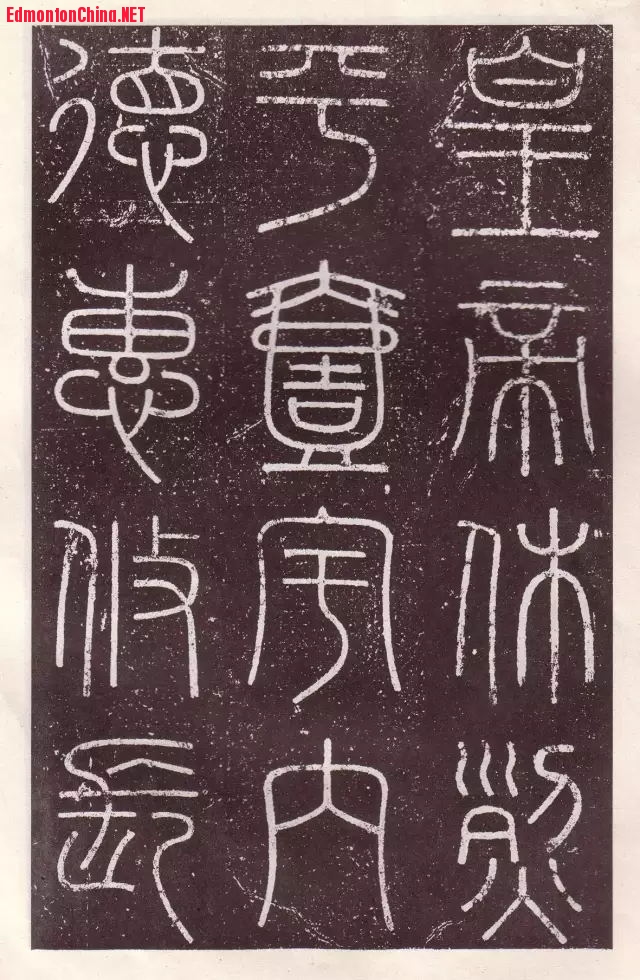 EdmontonChina.NET
皇帝休烈
平壹宇內
德惠攸長